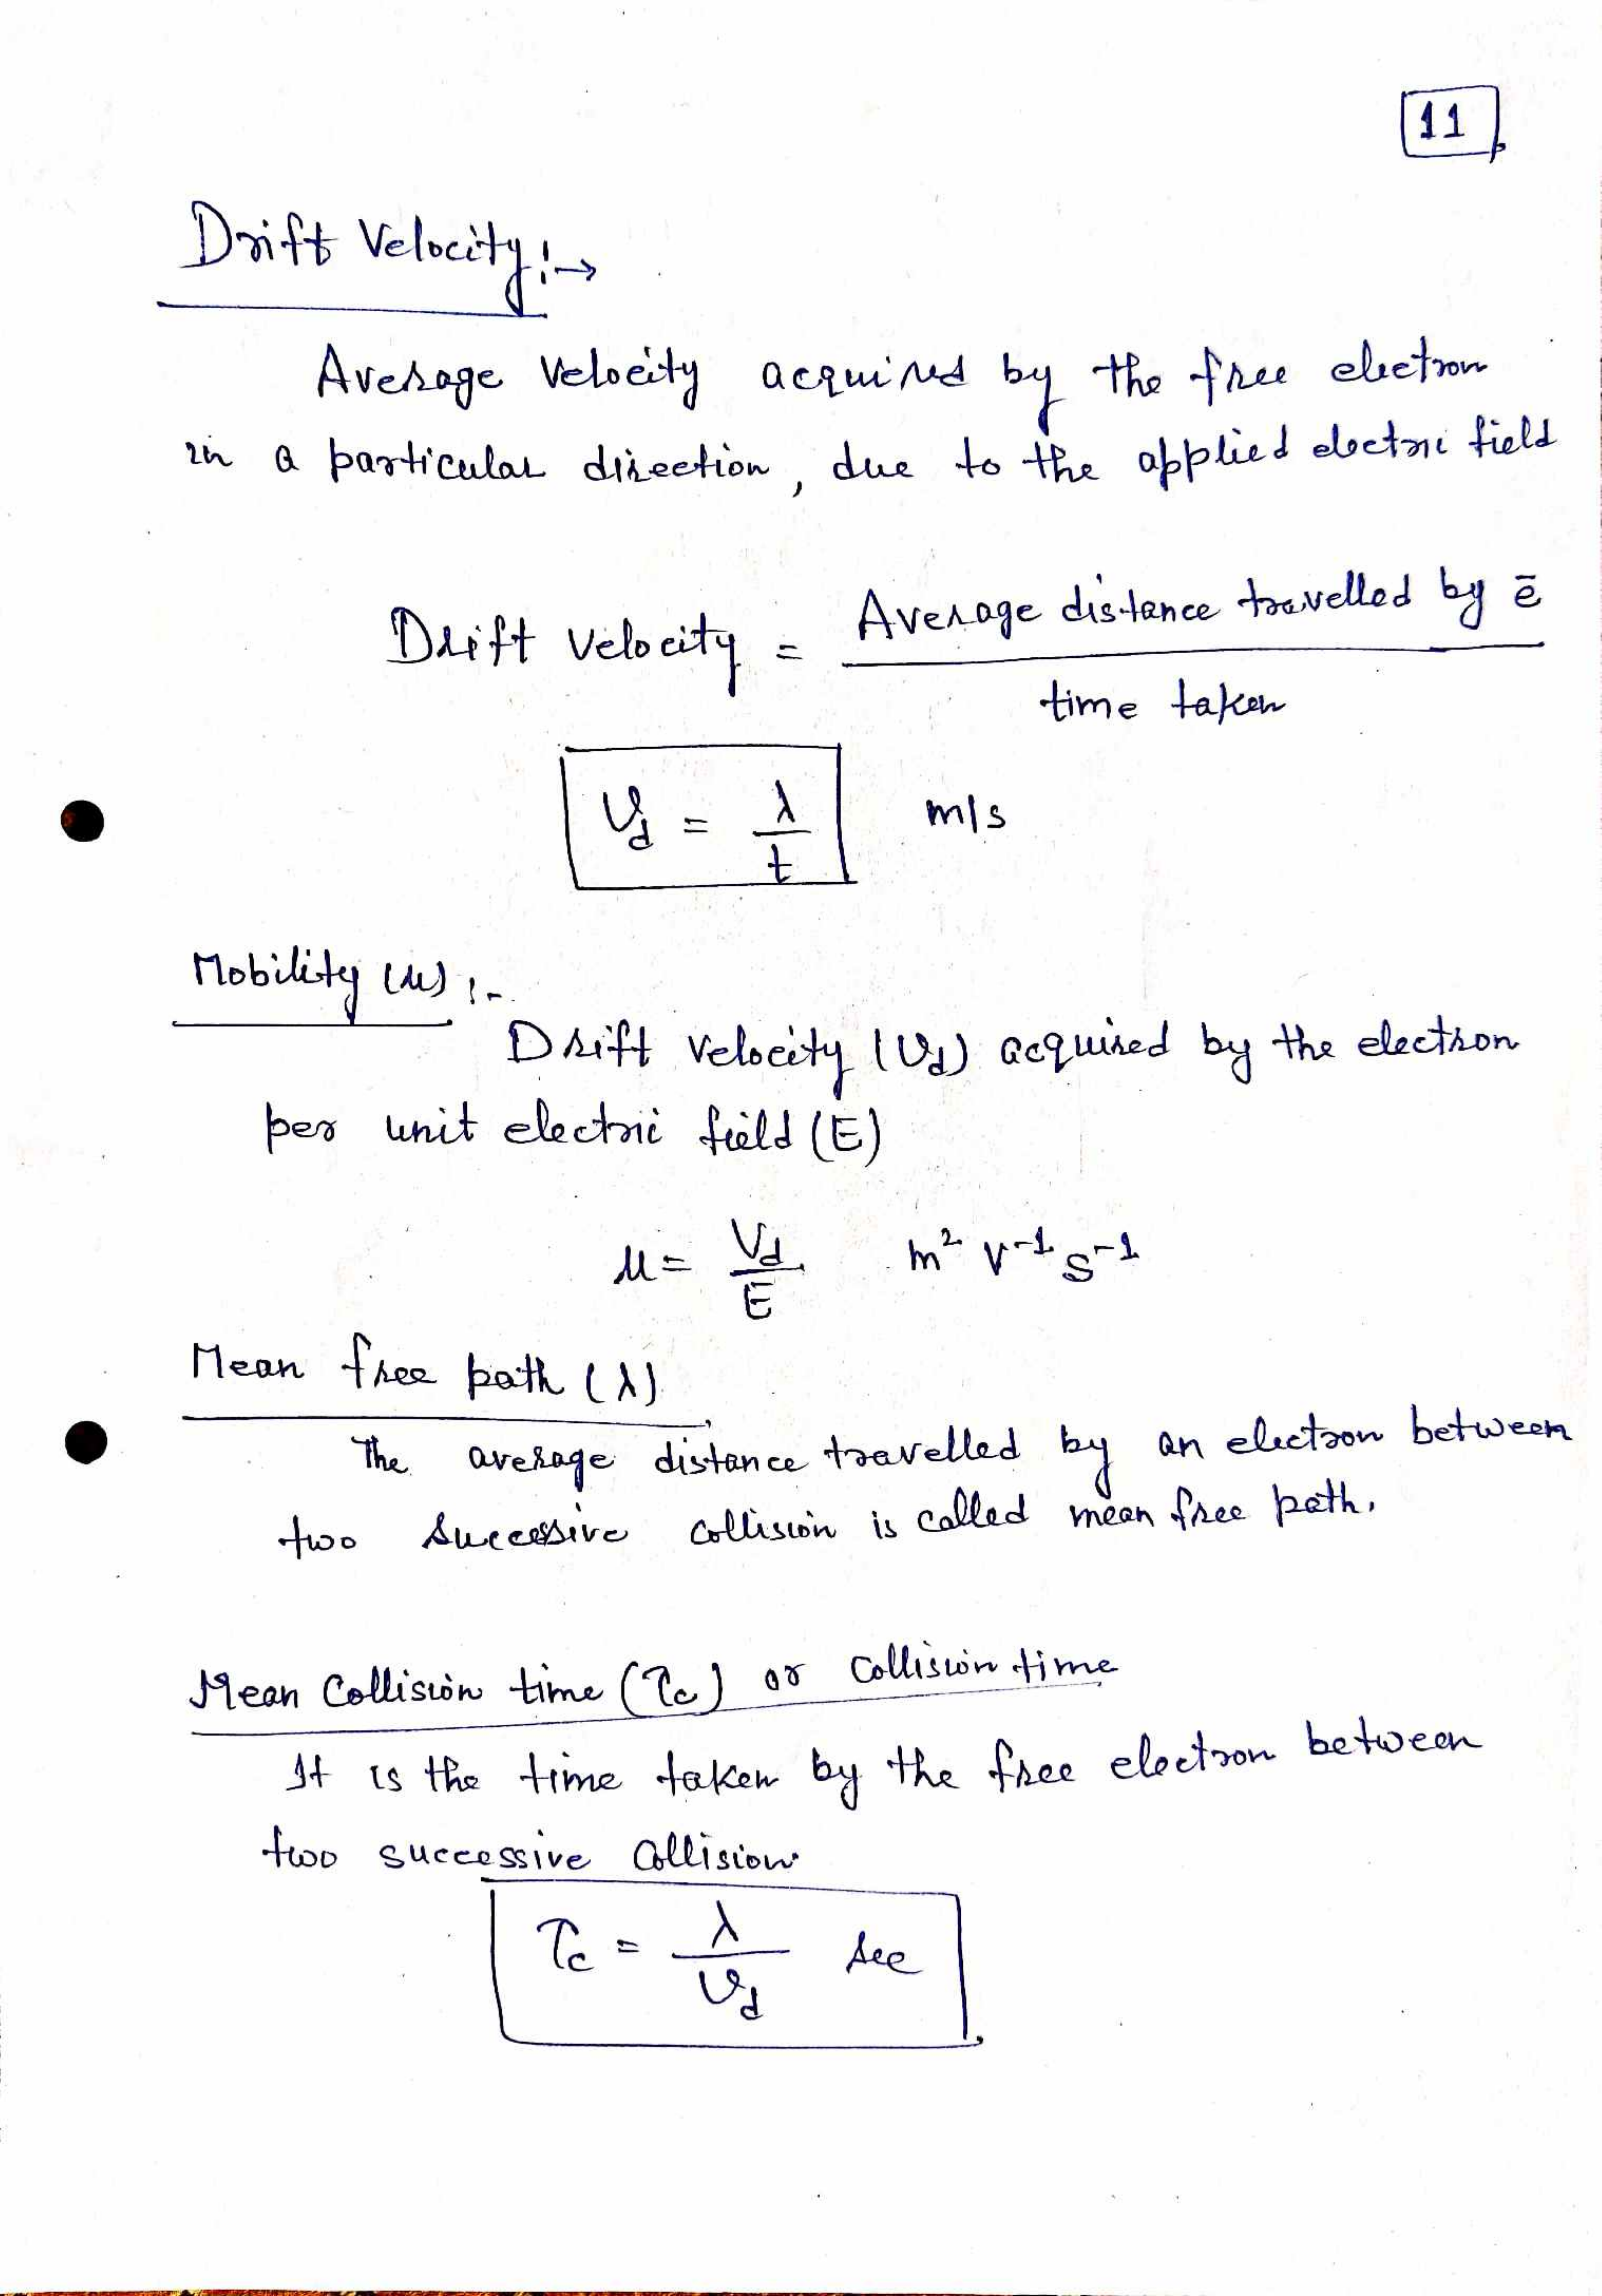 11
Drift Velocity :→
Average velocity acquired by the free electron
in a particular direction, due to the applied electric field
Drift velocity = Average distance travelled by ē
time taken
v_d = λ/t m/s
Mobility (μ) :-
Drift velocity (v_d) acquired by the electron
per unit electric field (E)
μ = V_d/E m² V⁻¹ s⁻¹
Mean free path (λ)
The average distance travelled by an electron between
two successive collision is called mean free path.
Mean Collision time (τc) or Collision time
It is the time taken by the free electron between
two successive Collision
τc = λ/v_d sec